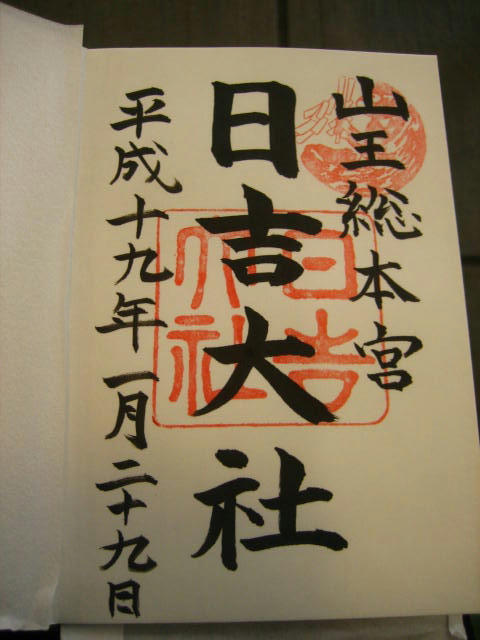 山王総本宮
日吉大社
平成十九年一月二十九日
日吉
大社